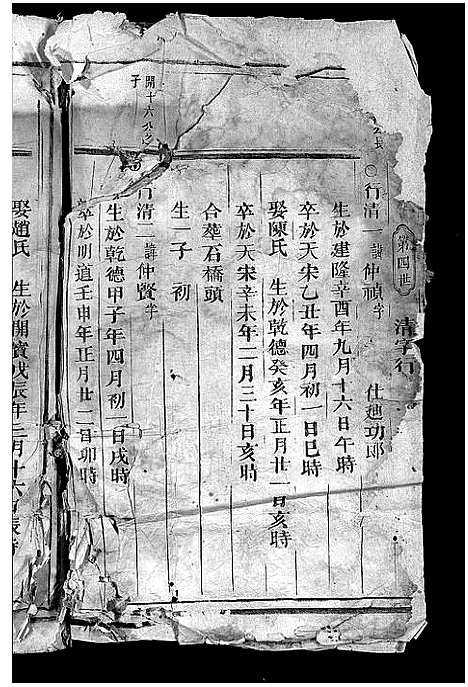 第四世 清字行
行清一諱仲禎字 仕迪功郎
生於建隆辛酉年九月十六日午時
卒於天宋乙丑年四月初一日巳時
娶陳氏 生於乾德癸亥年正月廿一日亥時
卒於天宋辛未年二月三十日亥時
合葬石橋頭
生一子 初
行清二諱仲賢字
生於乾德甲子年四月初一日戌時
卒於明道壬申年正月廿二日卯時
娶趙氏 生於開寶戊辰年三月十六日辰時